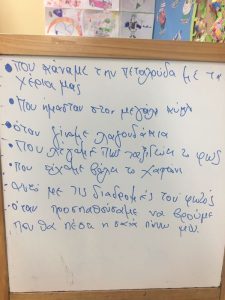 • που κάναμε την πεταλούδα με τα
χέρια μας
• Που ήμασταν στον μεγάλο κύκλο
• όταν γίναμε λαγουδάκια
• που λέγαμε πως ταξιδεύει το φως
• που είχαμε βάλει το χαρτόνι
• αυτό με τις διαδρομές του φωτός
• όταν προσπαθούσαμε να βρούμε
που θα πέσει η σκιά πάνω μας